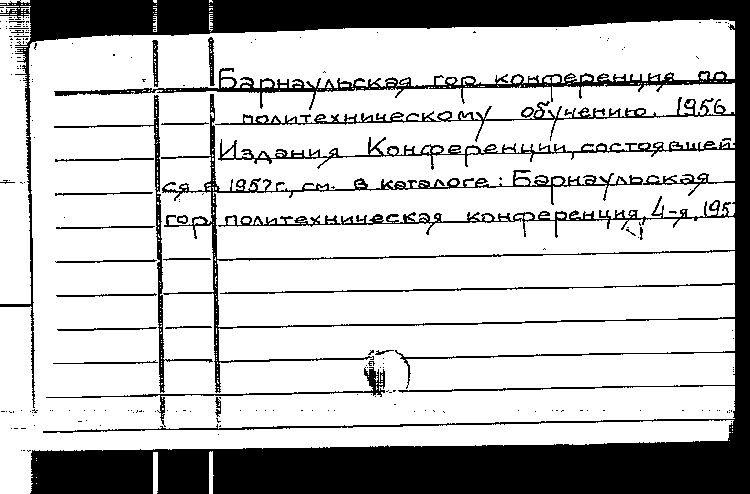 Барнаульская гор. конференция по
политехническому обучению. 1956.
Издания Конференции, состоявшей-
ся в 1957г., см. в каталоге: Барнаульская
гор. политехническая конференция, 4-я, 195